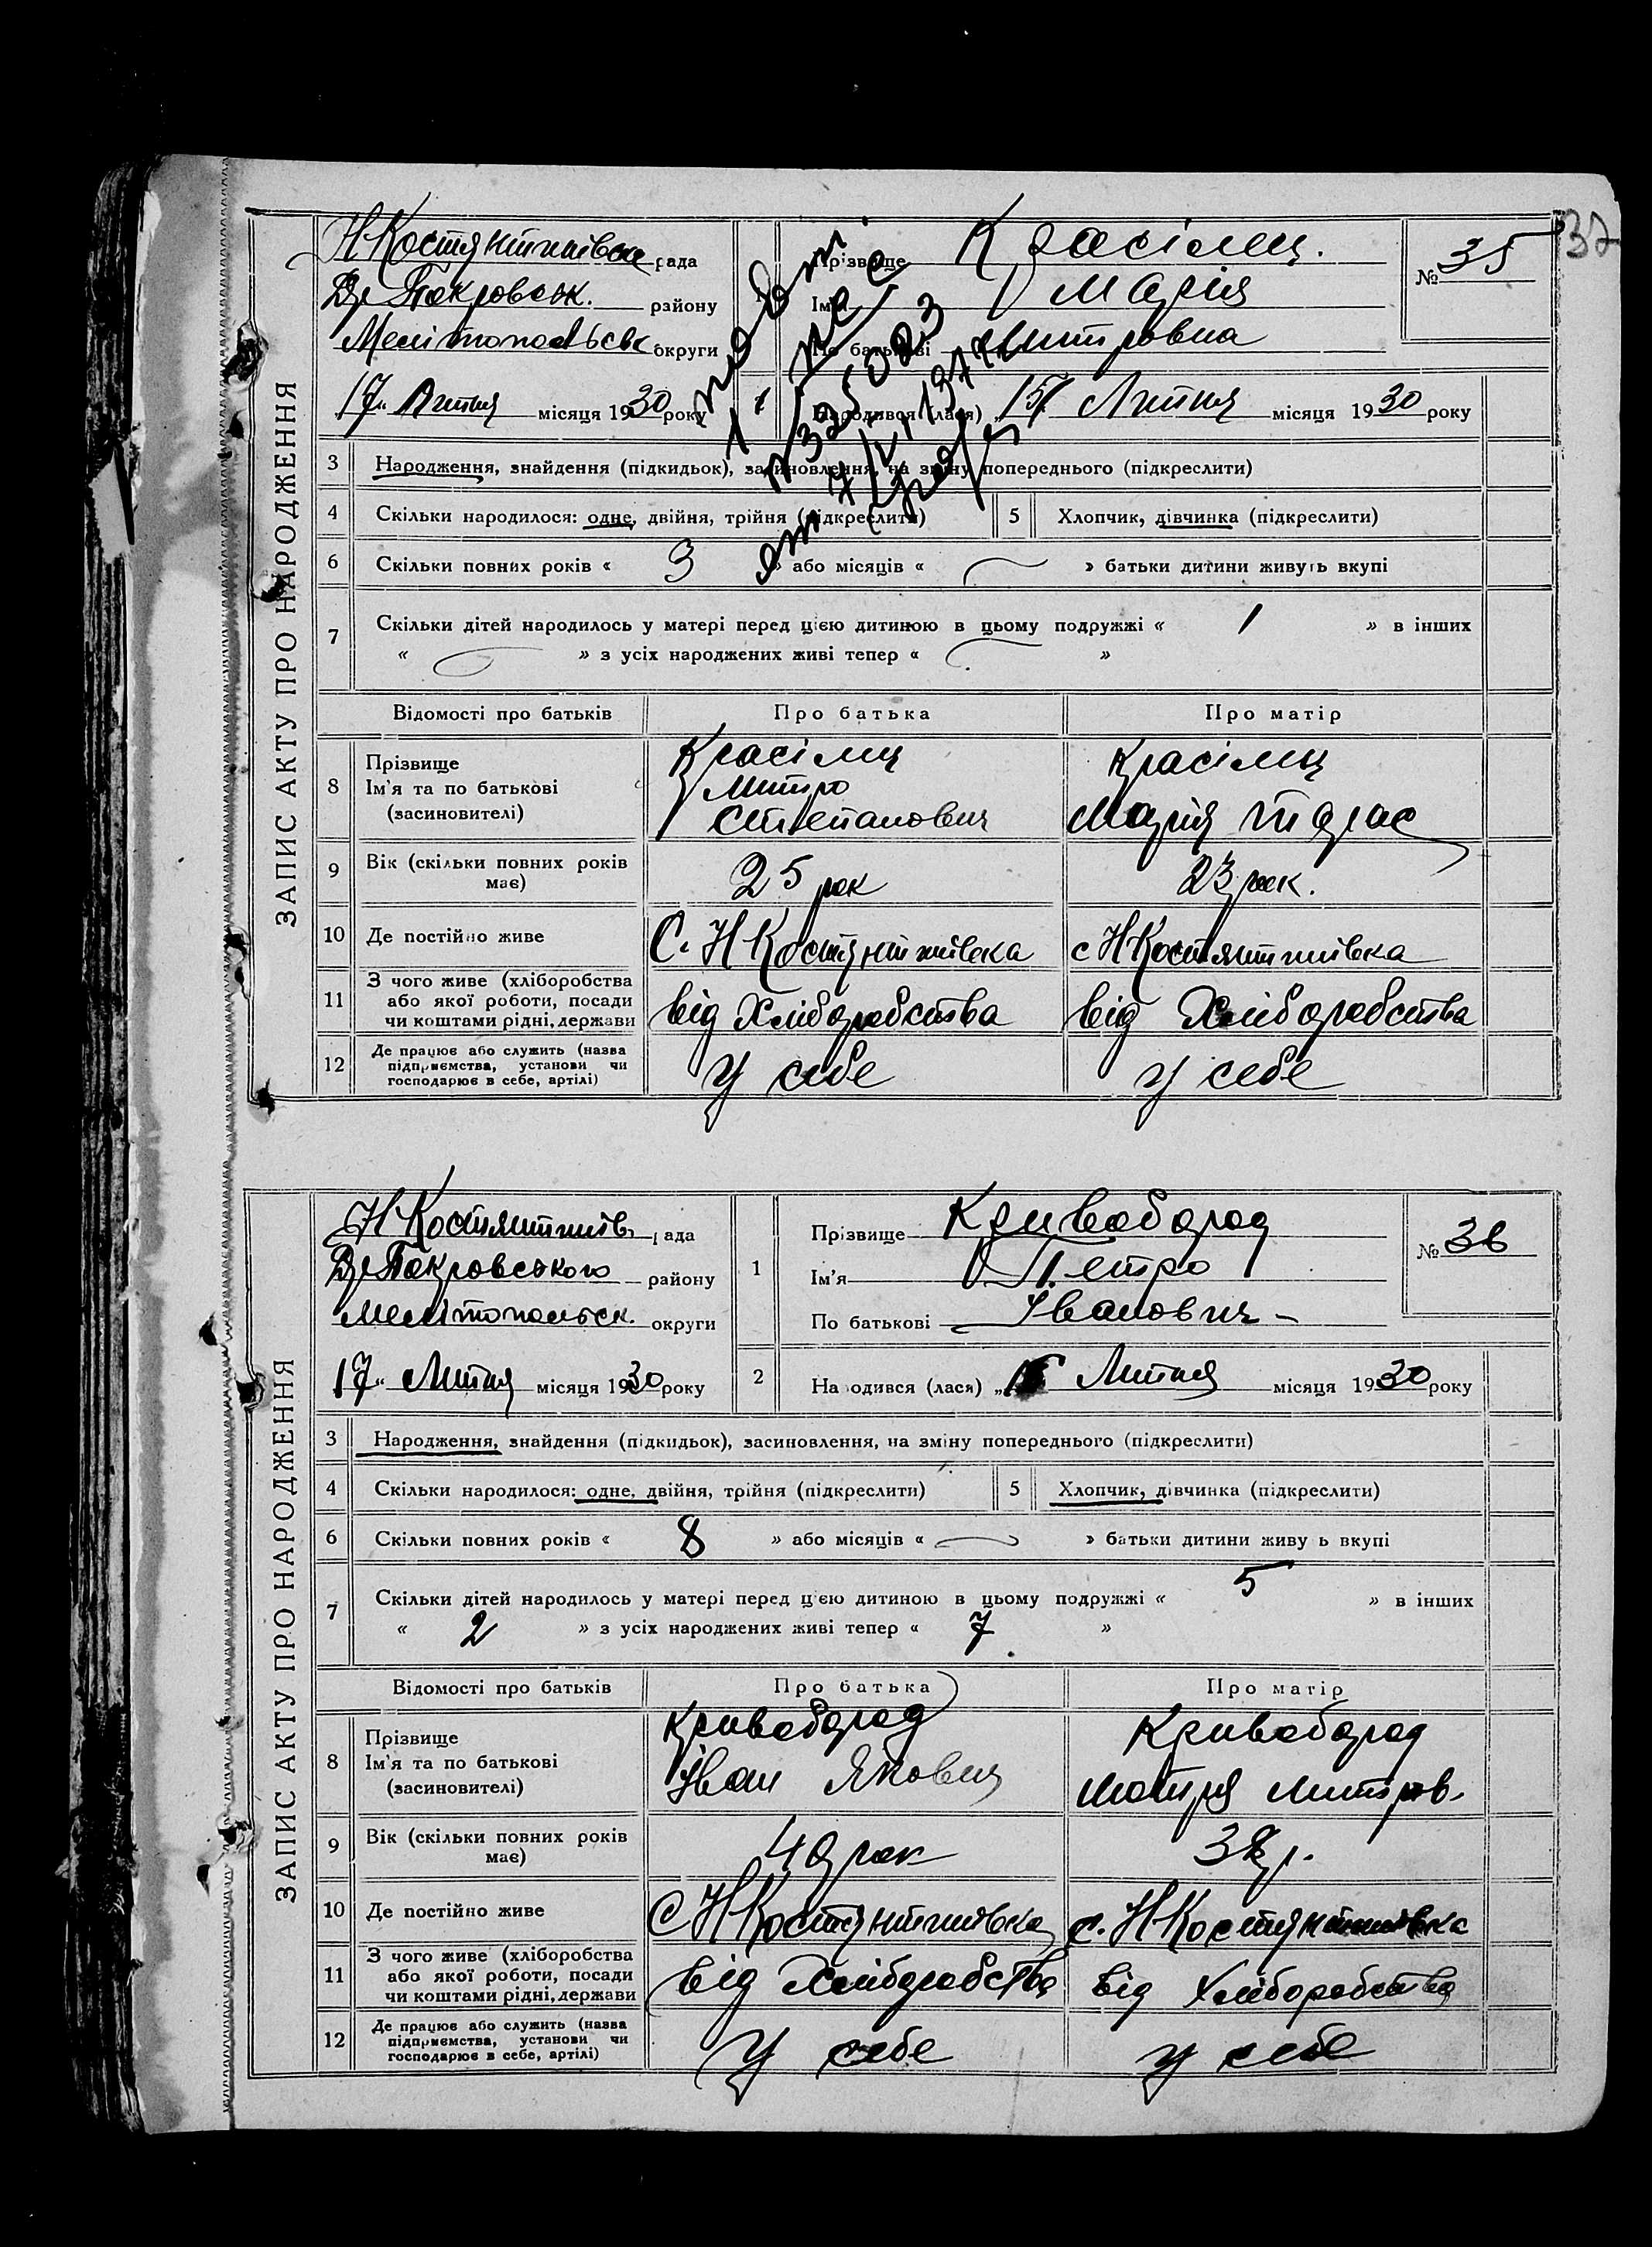 37
ЗАПИС АКТУ ПРО НАРОДЖЕННЯ
Н Костянтинівськ рада
Покровськ. району
Мелітопольськ округи
17 Лютня місяця 1930 року
Прізвище
Ім'я Марія
По батькові Митровна
№ 35
Народився (лася) 15 Лютня місяця 1930 року
3 Народження, знайдення (підкидьок), засиновлення, на зміну попереднього (підкреслити)
4 Скільки народилося: одне, двійня, трійня (підкреслити)
5 Хлопчик, дівчинка (підкреслити)
6 Скільки повних років « 3 » або місяців « — » батьки дитини живуть вкупі
7 Скільки дітей народилось у матері перед цією дитиною в цьому подружжі « 1 » в інших
« — » з усіх народжених живі тепер « — »
Відомості про батьків
Про батька
Про матір
8 Прізвище
Ім'я та по батькові
(засиновителі)
Митро
Степанович
Марія Тарас
9 Вік (скільки повних років має)
25 рок
23 рок.
10 Де постійно живе
С. Н Костянтинівка
с Н Костянтинівка
11 З чого живе (хліборобства
або якої роботи, посади
чи коштами рідні, держави
від Хліборобства
від Хліборобства
12 Де працює або служить (назва
підприємства, установи чи
господарює в себе, артілі)
у себе
у себе
ЗАПИС АКТУ ПРО НАРОДЖЕННЯ
Н Костянтинів рада
Покровського району
Мелітопольськ. округи
17 Лютня місяця 1930 року
1 Прізвище Кривобород
Ім'я Петро
По батькові Іванович
№ 36
2 Народився (лася) Лютня місяця 1930 року
3 Народження, знайдення (підкидьок), засиновлення, на зміну попереднього (підкреслити)
4 Скільки народилося: одне, двійня, трійня (підкреслити)
5 Хлопчик, дівчинка (підкреслити)
6 Скільки повних років « 8 » або місяців « — » батьки дитини живуть вкупі
7 Скільки дітей народилось у матері перед цією дитиною в цьому подружжі « 5 » в інших
« 2 » з усіх народжених живі тепер « 7 »
Відомості про батьків
Про батька
Про матір
8 Прізвище
Ім'я та по батькові
(засиновителі)
Кривобород
Іван Якович
Кривобород
Мотря Митров.
9 Вік (скільки повних років має)
40 рок
10 Де постійно живе
С Н Костянтинівка
с. Н Костянтинівка
11 З чого живе (хліборобства
або якої роботи, посади
чи коштами рідні, держави
від Хліборобства
від Хліборобства
12 Де працює або служить (назва
підприємства, установи чи
господарює в себе, артілі)
у себе
у себе